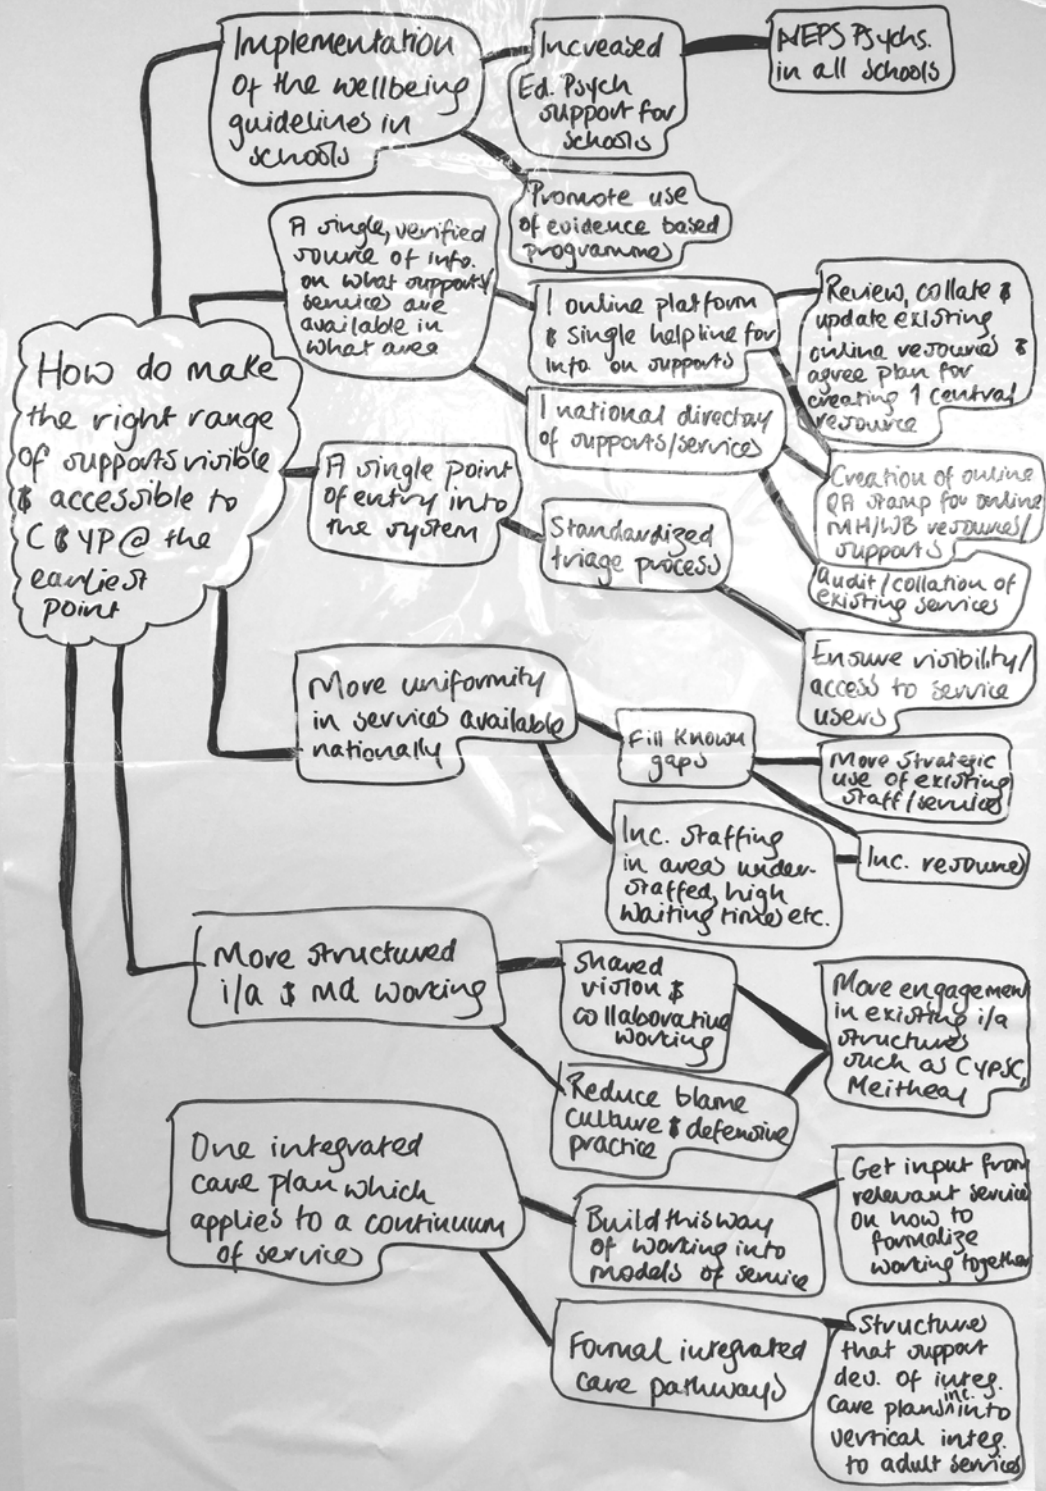 Implementation
of the wellbeing
guidelines in
schools
Increased
Ed. Psych
support for
schools
NEPS Psychs.
in all schools
Promote use
of evidence based
programmes
A single, verified
source of info.
on what supports/
services are
available in
what area
1 online platform
& single helpline for
info. on supports
Review, collate &
update existing
online resources &
agree plan for
creating 1 central
resource
1 national directory
of supports/services
Creation of online
QA stamp for online
MH/WB resources/
supports
Audit/collation of
existing services
How do make
the right range
of supports visible
& accessible to
C & YP @ the
earliest
point
A single point
of entry into
the system
Standardized
triage process
Ensure visibility/
access to service
users
More uniformity
in services available
nationally
Fill known
gaps
More strategic
use of existing
staff/services
Inc. staffing
in areas under-
staffed, high
waiting times etc.
Inc. resources
More structured
i/a & md working
Shared
vision &
collaborative
working
Reduce blame
culture & defensive
practice
More engagement
in existing i/a
structures
such as CYPSC,
Meitheal
One integrated
care plan which
applies to a continuum
of services
Build this way
of working into
models of service
Get input from
relevant service
on how to
formalize
working together
Formal integrated
care pathways
Structures
that support
dev. of integ.
care plans inc. into
vertical integ.
to adult services